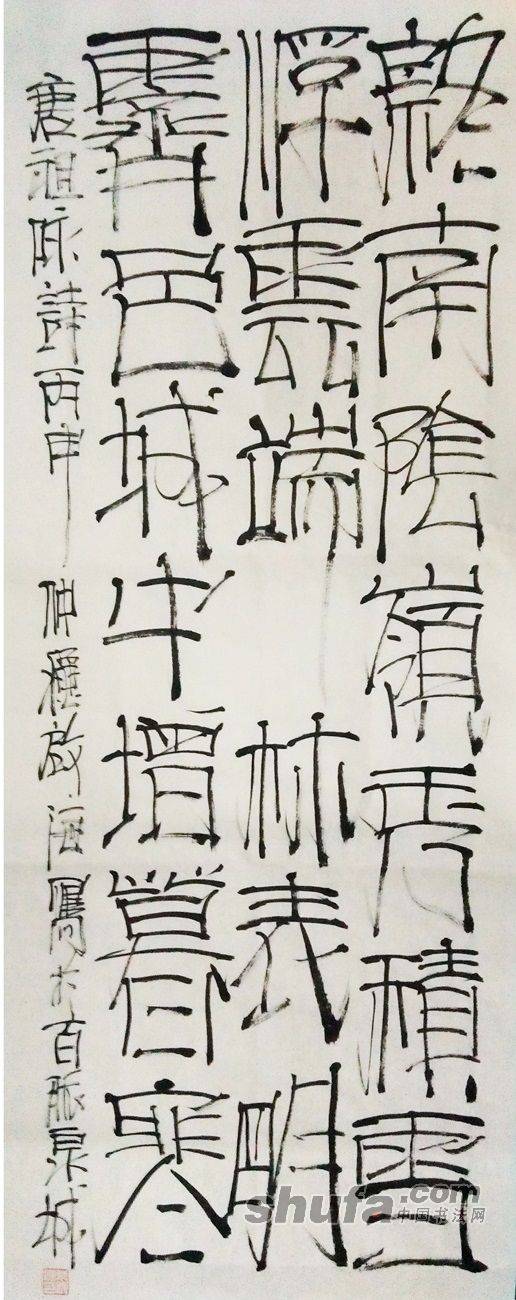 終南陰嶺秀積雪
浮雲端林表明
霽色城中增暮寒
唐祖咏詩丙申仲龝啟海寫於百脈泉城
shufa.com
中国书法网